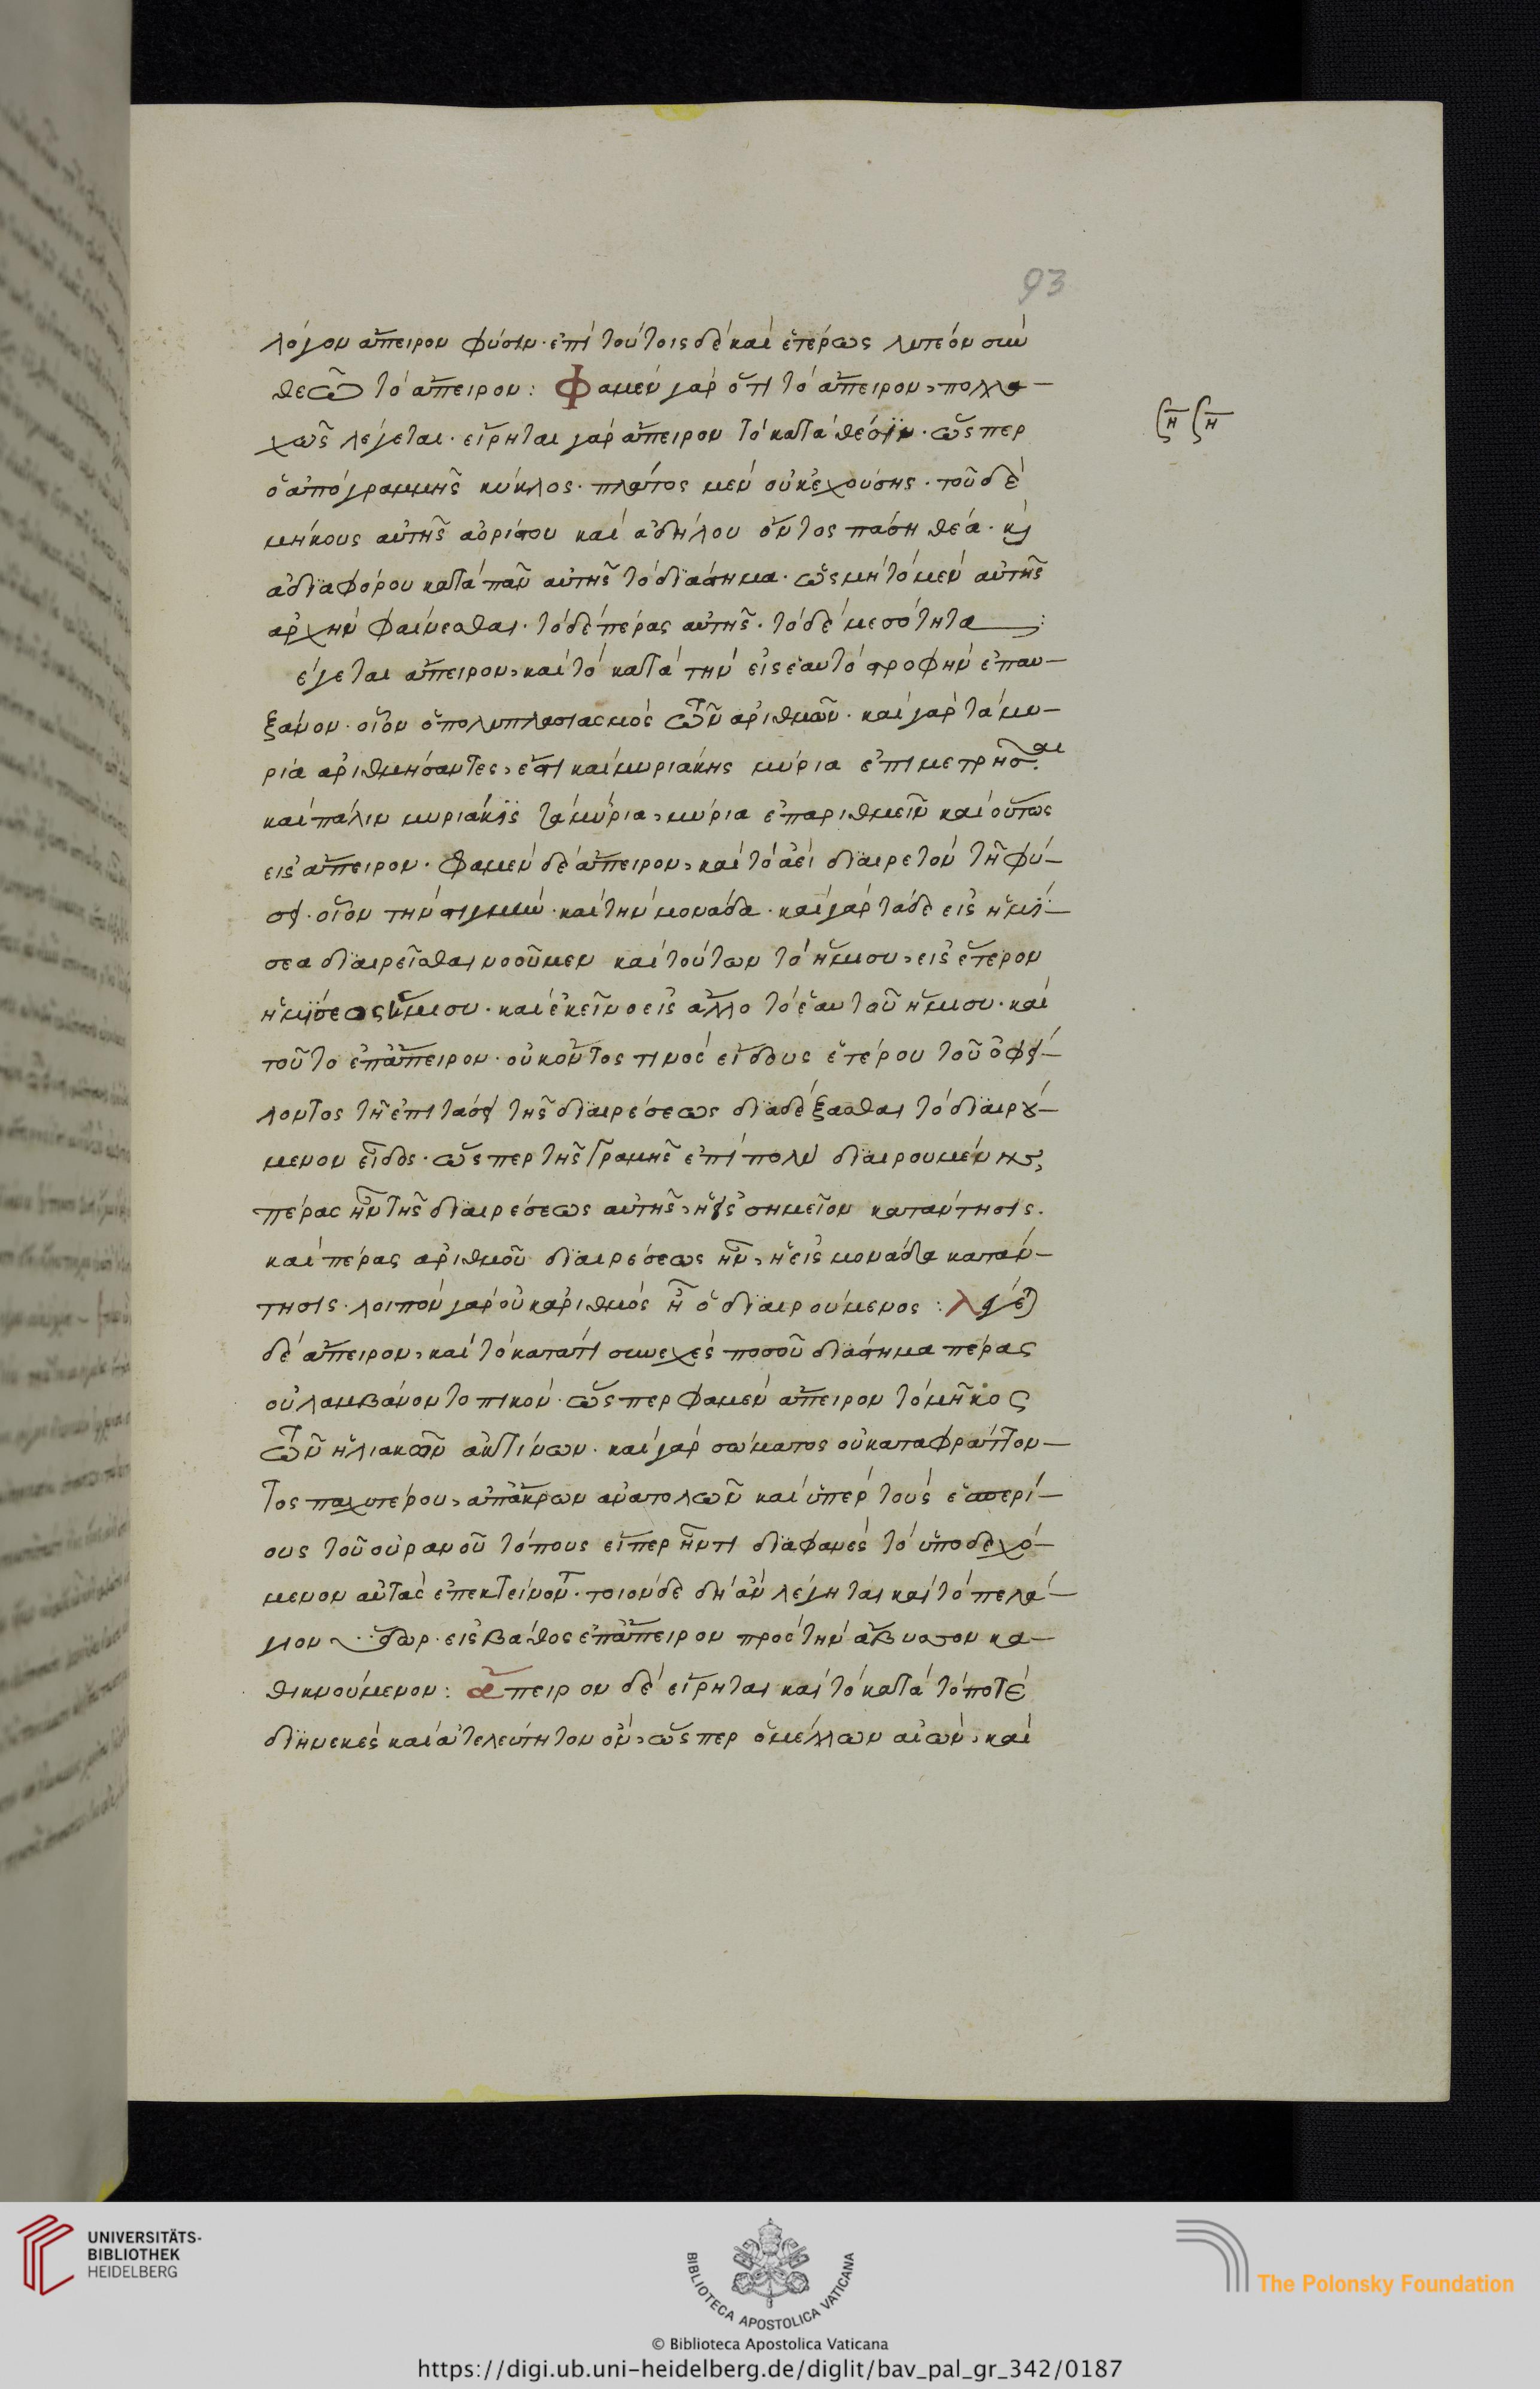 93
λόγον ἄπειρον φύσιν· ἐπὶ τούτοις δὲ καὶ ἑτέρως λυτέον σὺν
θεῶ τὸ ἄπειρον: Φαμὲν γὰρ ὅτι τὸ ἄπειρον, πολλα—
χῶς λέγεται· εἴρηται γὰρ ἄπειρον τὸ κατὰ θέσϊν· ὥσπερ
ὁ ἀπὸ γραμμῆς κύκλος· πλάτος μὲν οὐκ ἐχούσης· τοῦ δὲ
μήκους αὐτῆς ἀορίστου καὶ ἀδήλου ὄντος πάση θέα· κ
ἀδϊαφόρου κατὰ πᾶν αὐτῆς τὸ δϊάστημα· ὡς μὴ τὸ μὲν αὐτῆς
ἀρχὴν φαίνεσθαι· τὸ δὲ πέρας αὐτῆς· τὸ δὲ μεσότητα:
έγεται ἄπειρον, καὶ τὸ κατὰ τὴν εἰς ἑαυτὸ στροφὴν ἐπαυ—
ξάνον· οἷον ὁ πολυπλασιασμὸς τῶν ἀριθμῶν· καὶ γὰρ τὰ μυ—
ρία ἀριθμήσαντες, ἔστι καὶ μυριάκης μύρια ἐπιμετρῆσαι.
καὶ πάλιν μυριάκϊς τὰ μύρια, μύρια ἐπαριθμεῖν καὶ οὕτως
εἰς ἄπειρον· φαμὲν δὲ ἄπειρον, καὶ τὸ ἀεὶ δϊαιρετὸν τῆ φύ—
σει· οἷον τὴν στιγμὴν· καὶ τὴν μονάδα· καὶ γὰρ τάδε εἰς ἡμί—
σεα δϊαιρεῖσθαι νοοῦμεν καὶ τούτων τὸ ἥμισυ, εἰς ἕτερον
ἡμϊσεος ἥμισυ· καὶ ἐκεῖνο εἰς ἄλλο τὸ ἑαυτοῦ ἥμισυ· καὶ
τοῦτο ἐπ ἄπειρον· οὐκ ὄντος τινὸς εἴδους ἑτέρου τοῦ ὀφεί—
λοντος τῆ ἐπιτάσει τῆς δϊαιρέσεως δϊαδέξασθαι τὸ δϊαιρού—
μενον εἶδος· ὥσπερ τῆς γραμῆς ἐπὶ πολὺ δϊαιρουμένης,
πέρας ἦν τῆς δϊαιρέσεως αὐτῆς, ἡ εἰς σημεῖον κατάντησις.
καὶ πέρας ἀριθμοῦ δϊαιρέσεως ἦν, ἡ εἰς μονάδα κατάν—
τησις· λοιπὸν γὰρ οὐκ ἀριθμὸς ἦ ὁ δϊαιρούμενος:
δὲ ἄπειρον, καὶ τὸ κατά τι συνεχὲς ποσοῦ δϊάστημα πέρας
οὐ λαμβάνον τοπικόν· ὥσπερ φαμὲν ἄπειρον τὸ μῆκος
τῶν ἡλιακῶν ἀκτίνων· καὶ γὰρ σώματος οὐ καταφράττον—
τος παχυτέρου, ἀπ ἄκρων ἀνατολῶν καὶ ὑπὲρ τοὺς ἑσπερί—
ους τοῦ οὐρανοῦ τόπους εἴπερ ἦν τι δϊαφανὲς τὸ ὑποδεχό—
μενον αὐτὰς ἐπεκτείνοντ· τοιόνδε δὴ ἂν λέγηται καὶ τὸ πελά—
γιον ὕδωρ· εἰς βάθος ἐπ ἄπειρον πρὸς τὴν ἄβυσσον κα—
θικνούμενον: ἄπειρον δὲ εἴρηται καὶ τὸ κατὰ τὸ ποτὲ
δϊηνεκὲς καὶ ἀτελεύτητον ὂν, ὥσπερ ὁ μέλλων αἰὼν, καὶ
UNIVERSITÄTS-
BIBLIOTHEK
HEIDELBERG
BIBLIOTECA APOSTOLICA VATICANA
The Polonsky Foundation
© Biblioteca Apostolica Vaticana
https://digi.ub.uni-heidelberg.de/diglit/bav_pal_gr_342/0187